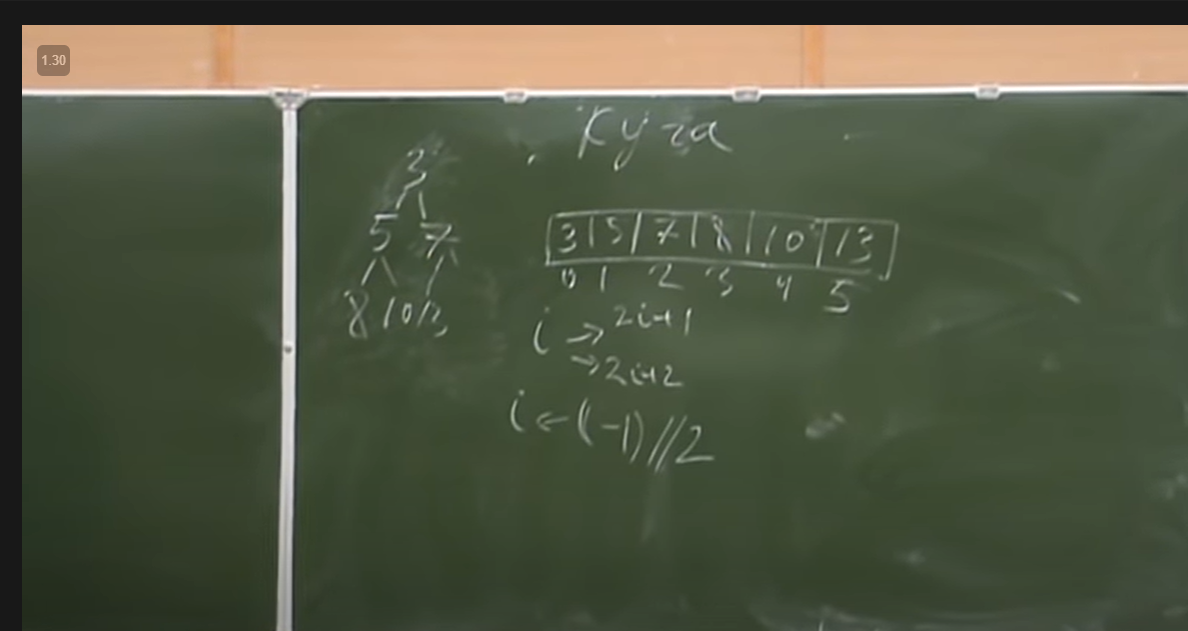 1.30
Куча
3
5 7
8 10 13
3 | 5 | 7 | 8 | 10 | 13
0 1 2 3 4 5
i → 2i+1
→ 2i+2
i ← (i-1)//2